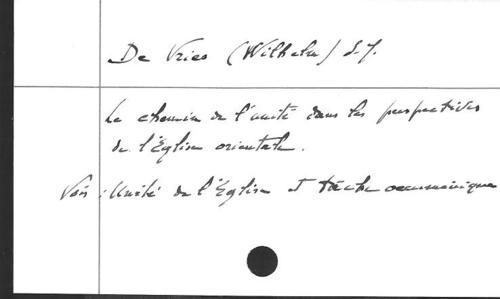 De Vries (Wilhelm) S.J.
Le chemin de l'unité dans les perspectives
de l'Église orientale.
Voir : Unité de l'Église et tâche oecuménique